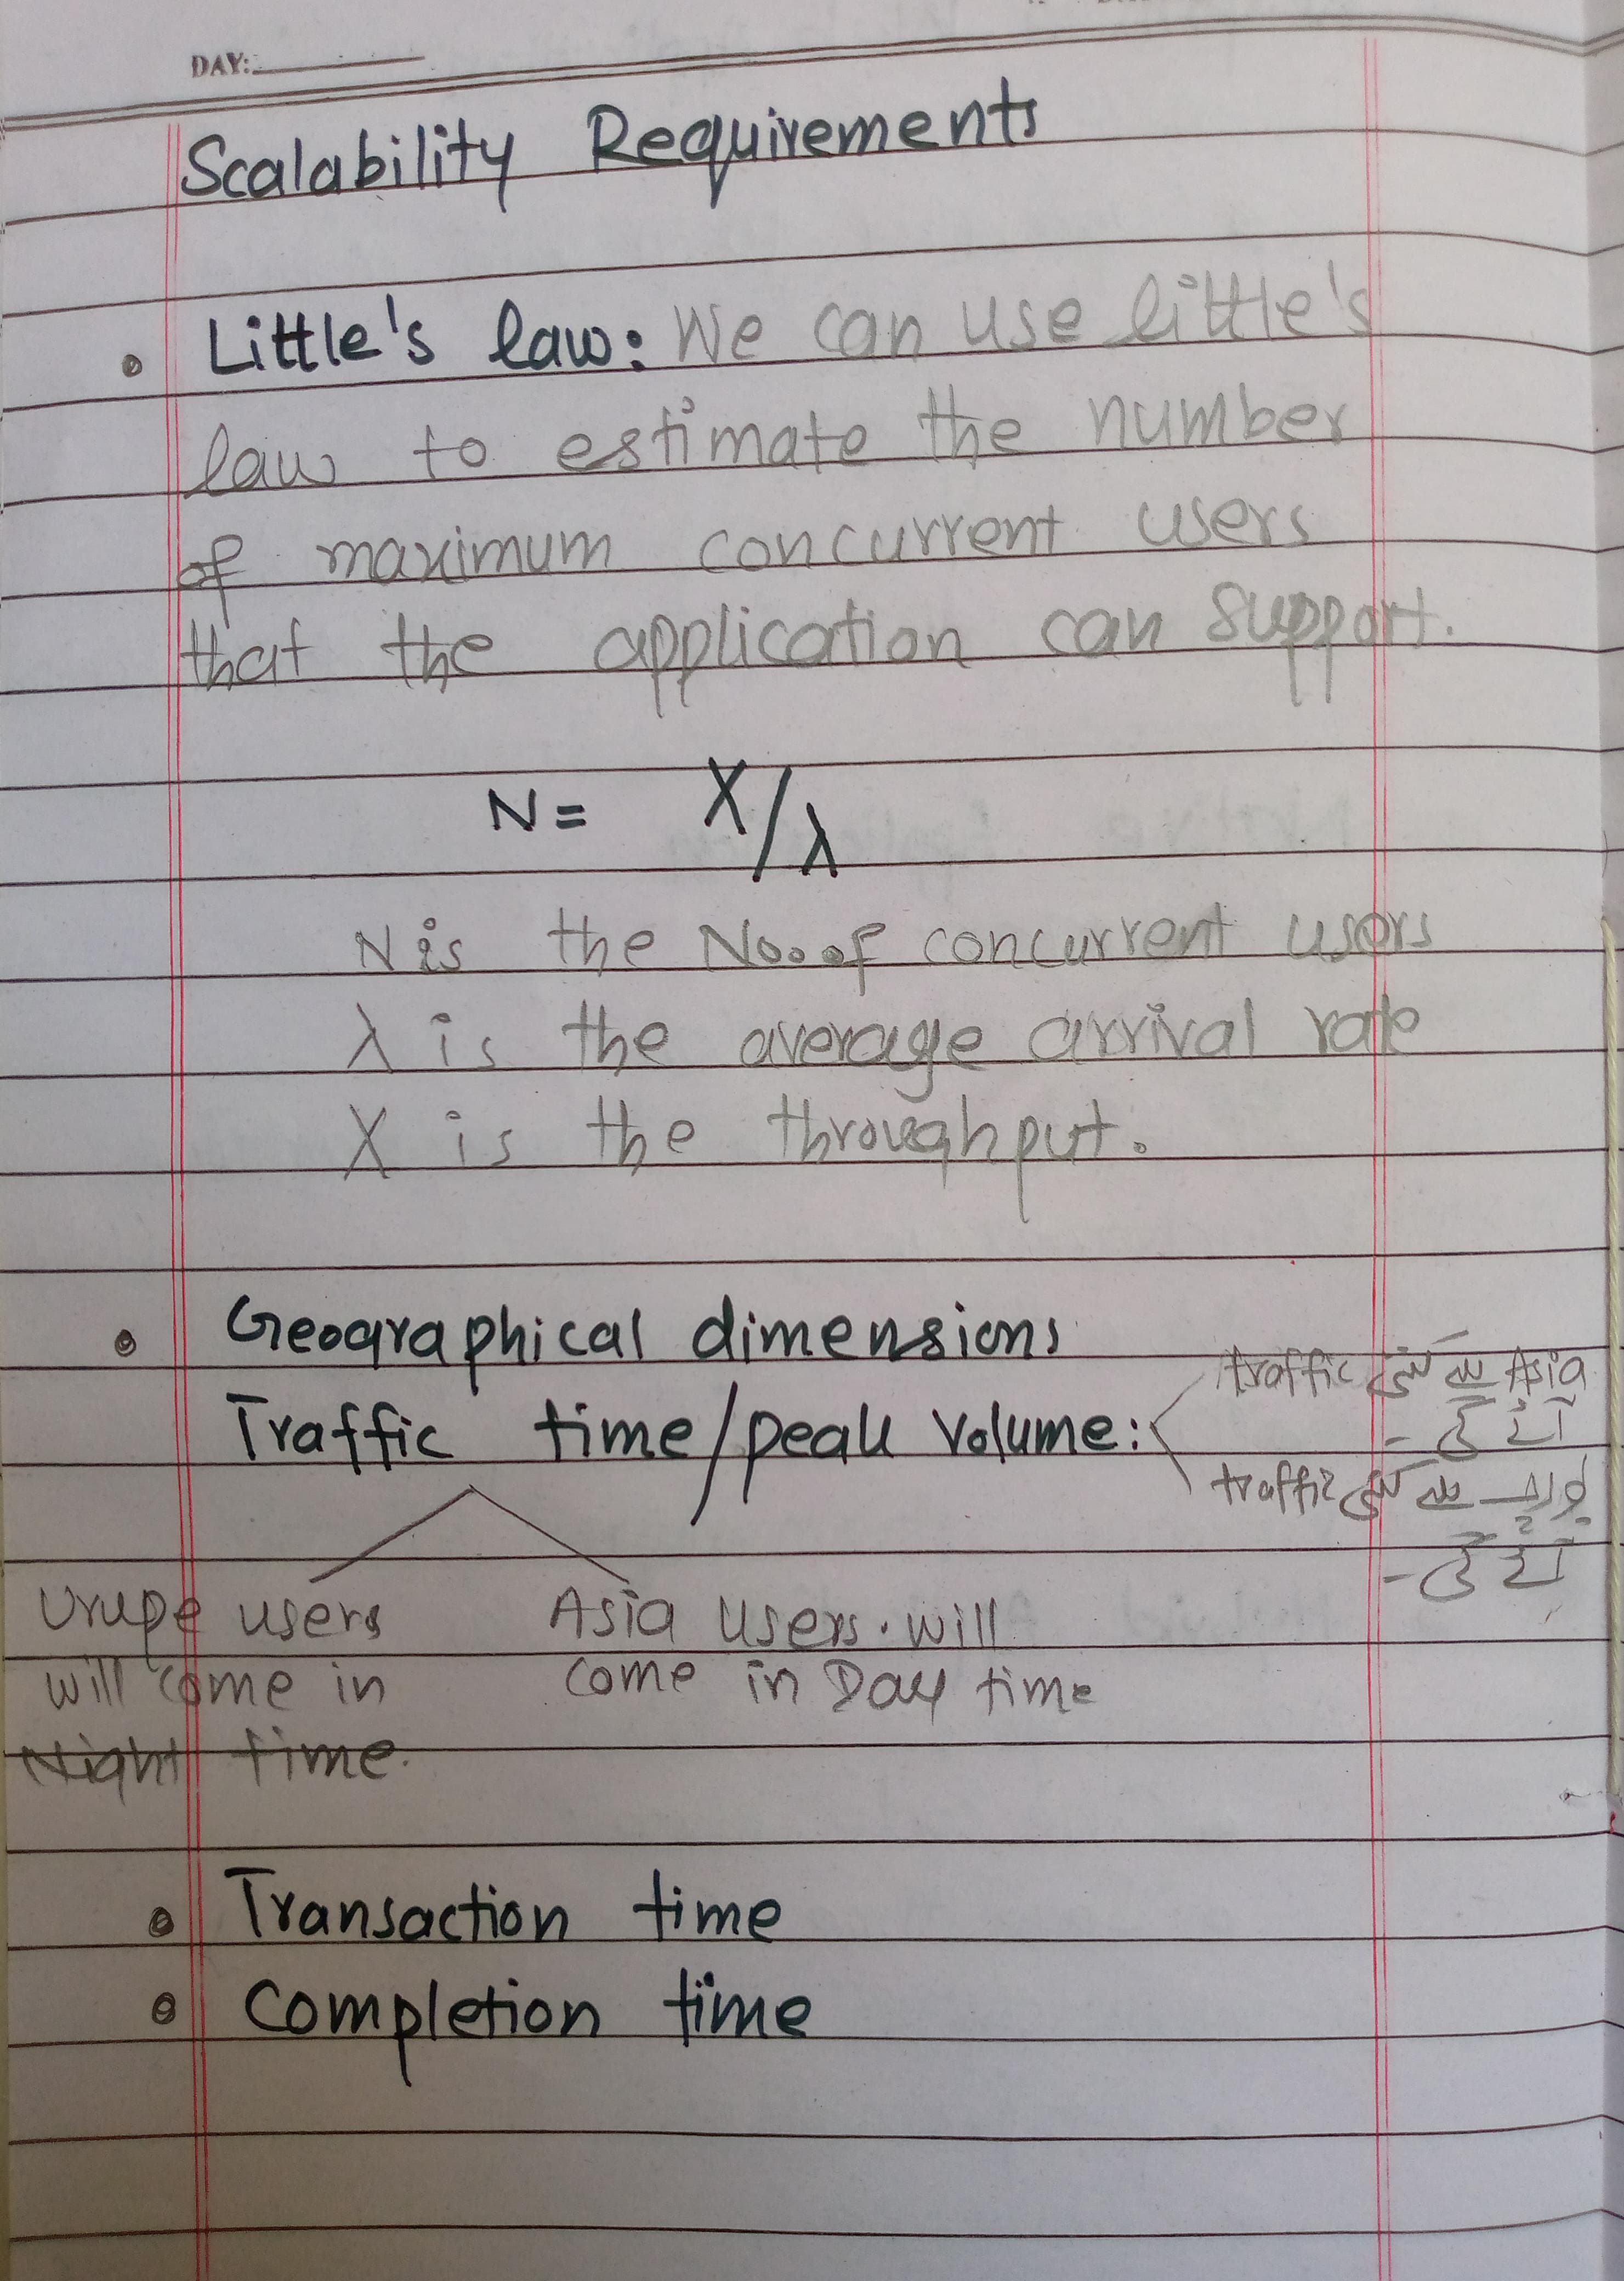 DAY:
Scalability Requirements
• Little's law: We can use little's
law to estimate the number
of maximum concurrent users
that the application can support.
N = X/λ
N is the No. of concurrent users
λ is the average arrival rate
X is the throughput.
• Geographical dimensions
traffic Asia
Traffic time/peak Volume:
traffic
Urupe users
will come in
Night time.
Asia users. will
come in Day time
• Transaction time
• Completion time